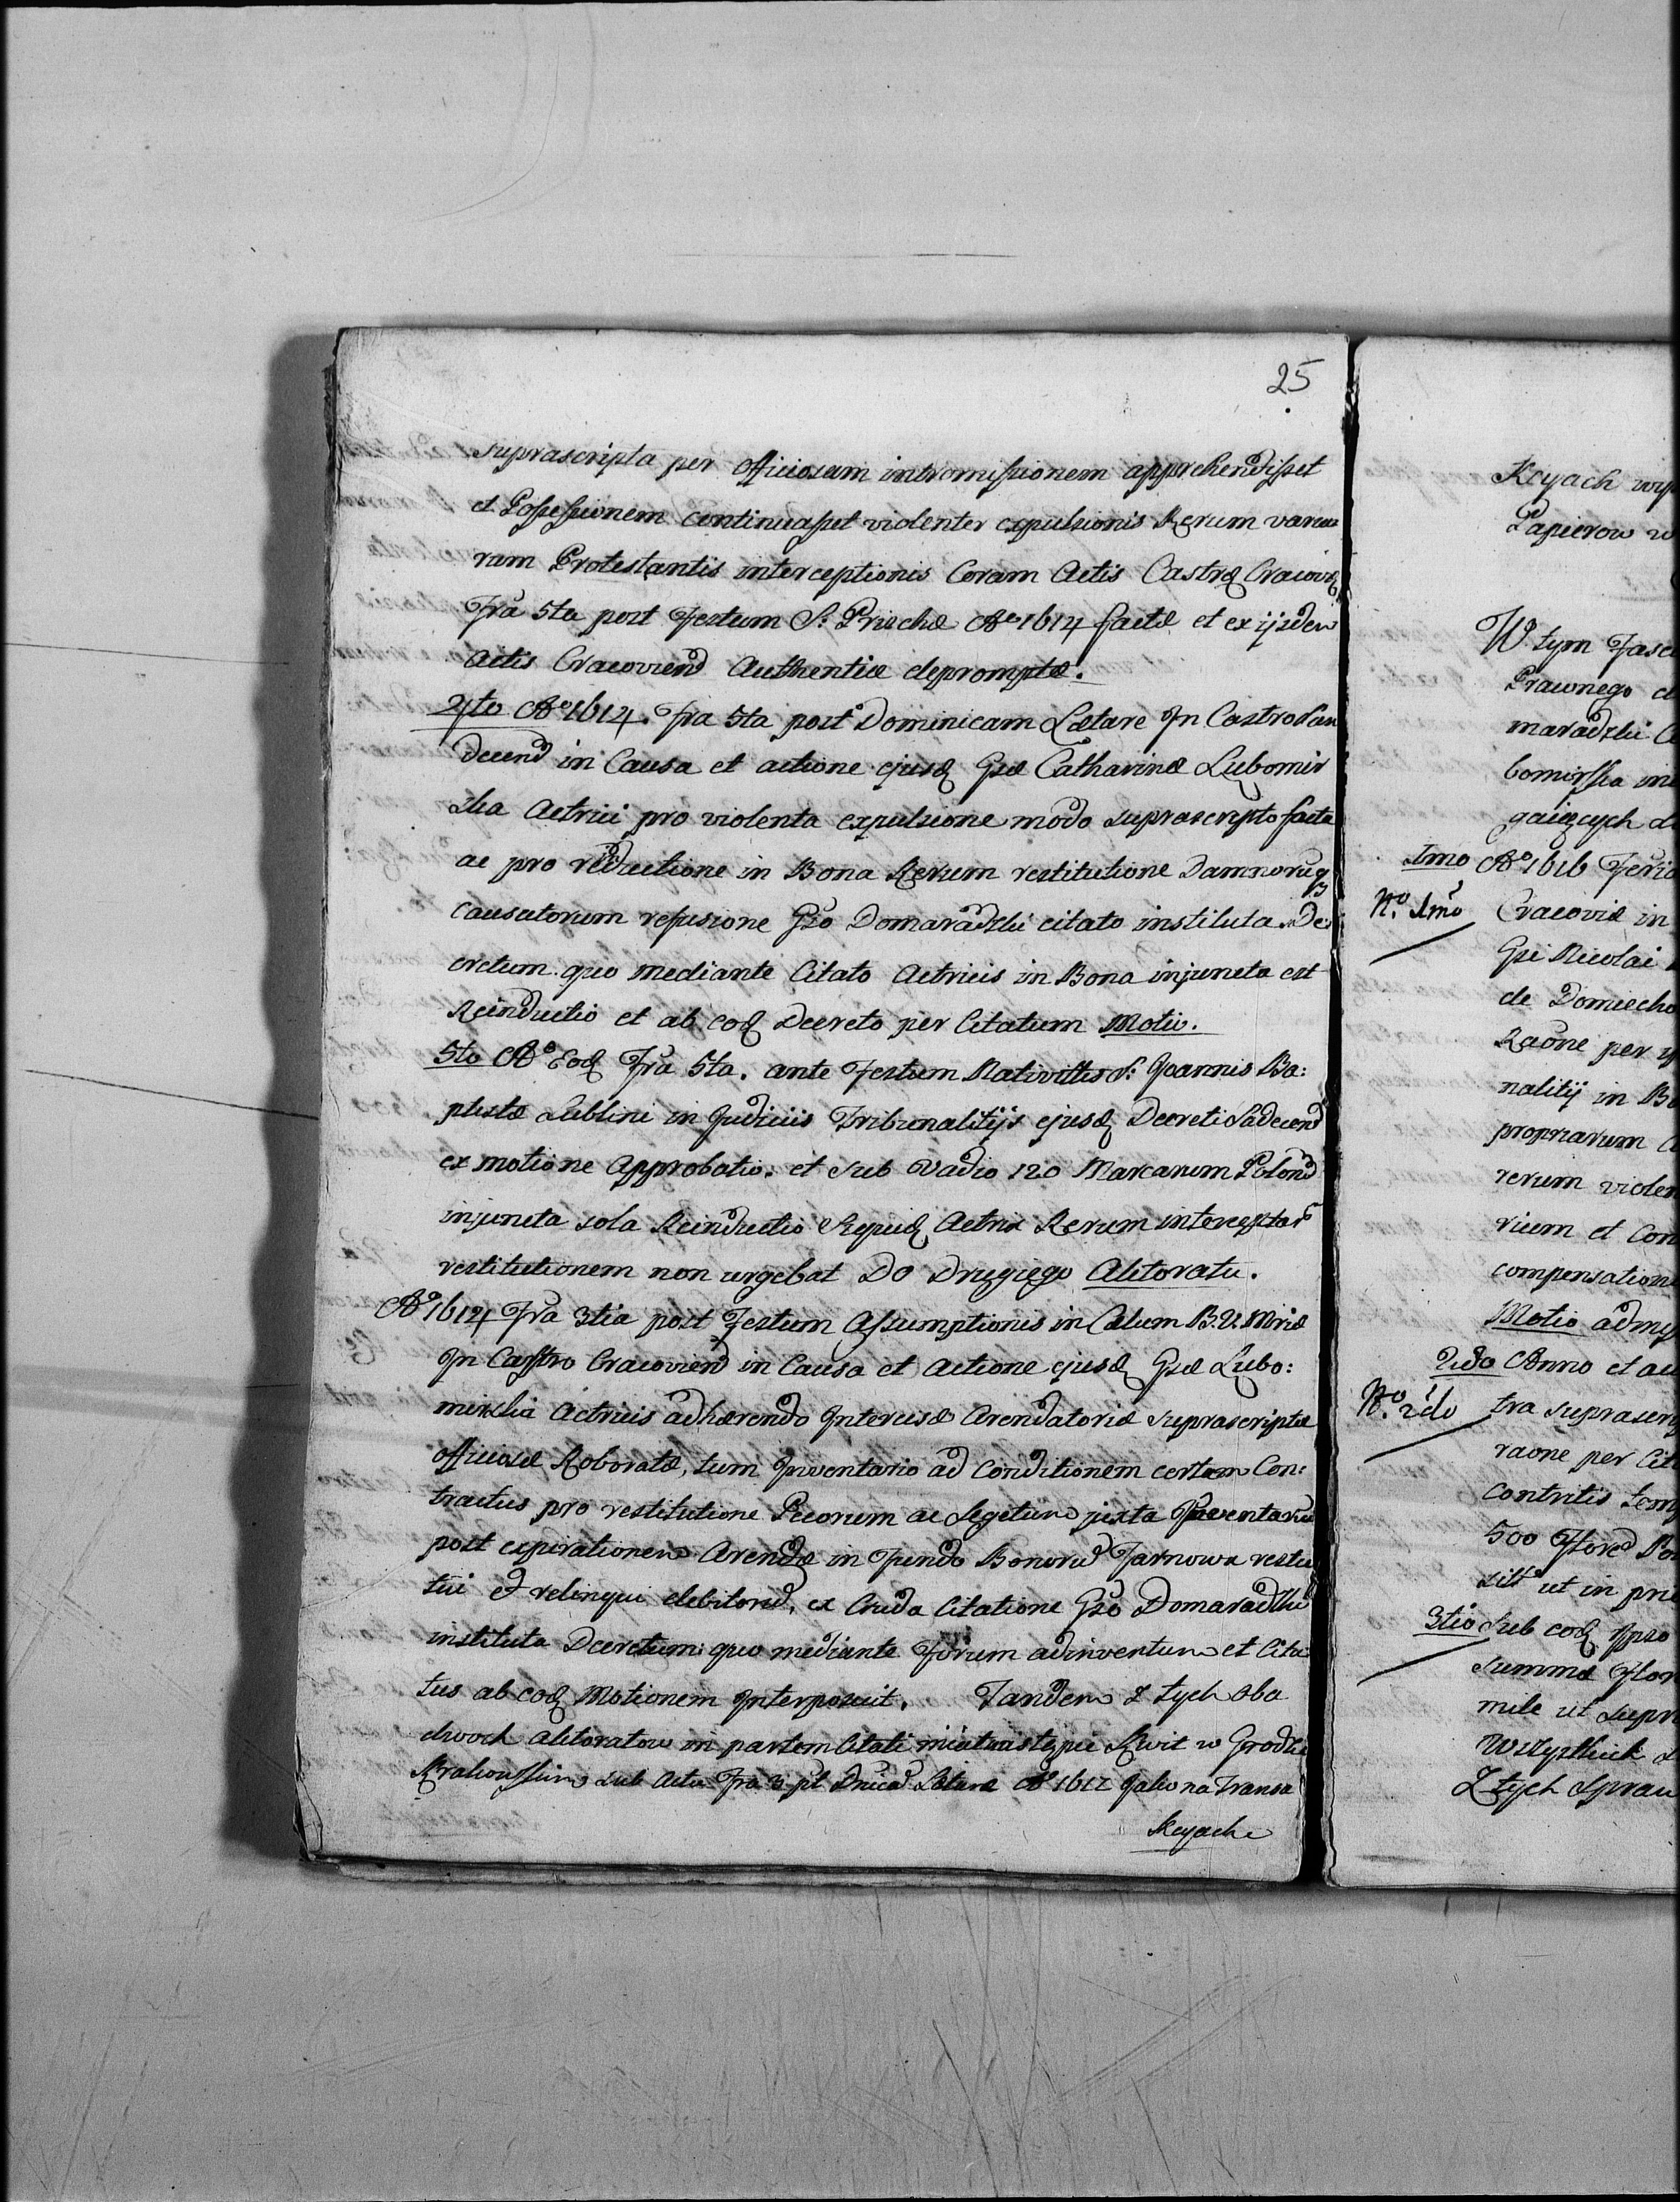 25
suprascripta per officiosam intromissionem apprehendisset
et Possessionem continuasset violenter expulsionis Rerum varia
rum Protestantis interceptionis Coram Actis Castrę Cracovię
Fra 5ta post Festum S: Priscæ Ao 1614 factæ et ex ijsdem
Actis Cracoviend Authenticæ depromptæ.
4to Ao 1614. Fra 5ta post Dominicam Lætare In Castro San
decend in Causa et actione ejusd Gsæ Catharinæ Lubomir
skia Actrici pro violenta expulsione modo suprascripto facta
ac pro reductione in Bona Rerum restitutione Damnorūq
causatorum refusione Gso Domaradzki citato instituta. De
cretum quo mediante Citato Actricis in Bona injuncta est
Reinductio et ab eod Decreto per Citatum Motio.
5to Ao Eod Fra 5ta. ante Festum Nativittis S: Joannis Ba:
ptistæ Lublini in Judiciis Tribunalitijs ejusd Decreti Sadecend
ex motione Approbatio. et sub Vadio 120 Marcarum Polond
injuncta sola Reinductio Actrix Rerum interceptar
restitutionem non urgebat Do Drugiego Alitoratu.
Ao 1614 Fra 3tia post Festum Assumptionis in Cælum B. V. Mriæ
In Castro Cracoviend in Causa et actione ejusd Gsæ Lubo:
mirskia Actricis adhærendo Intercisæ Arendatoriæ suprascriptæ
officiosæ Roboratæ, tum Inventario ad Conditionem certam Con:
tractus pro restitutione Pecorum ac Segetum juxta Inventariū
post expirationem Arendæ in Fundo Bonorū Jarnowa resti
tui et relinqui debitorū, ex Cruda Citatione Gso Domaradzki
instituta Decretum: quo mediante Forum adinventum et Cita
tus ab eod Motionem Interposuit. Tandem z tych obu
dwoch alitoratow in partem Citati Kwit w Grodzie
Krakowskim sub Actu Fra 3 pt Dnicā Lætare Ao 1612 Jako na Transa
kcyach
Kcyach
Papierow w
W tym
Prawnego
maradzki
bomirska
1mo Ao 1616
No 1mo Cracoviæ in
Gsi Nicolai
de
Raone per
nalitij in
propriarum
rerum
rium et Con
compensation
Motio
2do Anno et
No 2do tra
raone per
Contritis
500
ut in
3tio Sub eod
Summæ
mile ut
Wszystkich
Z tych Spraw